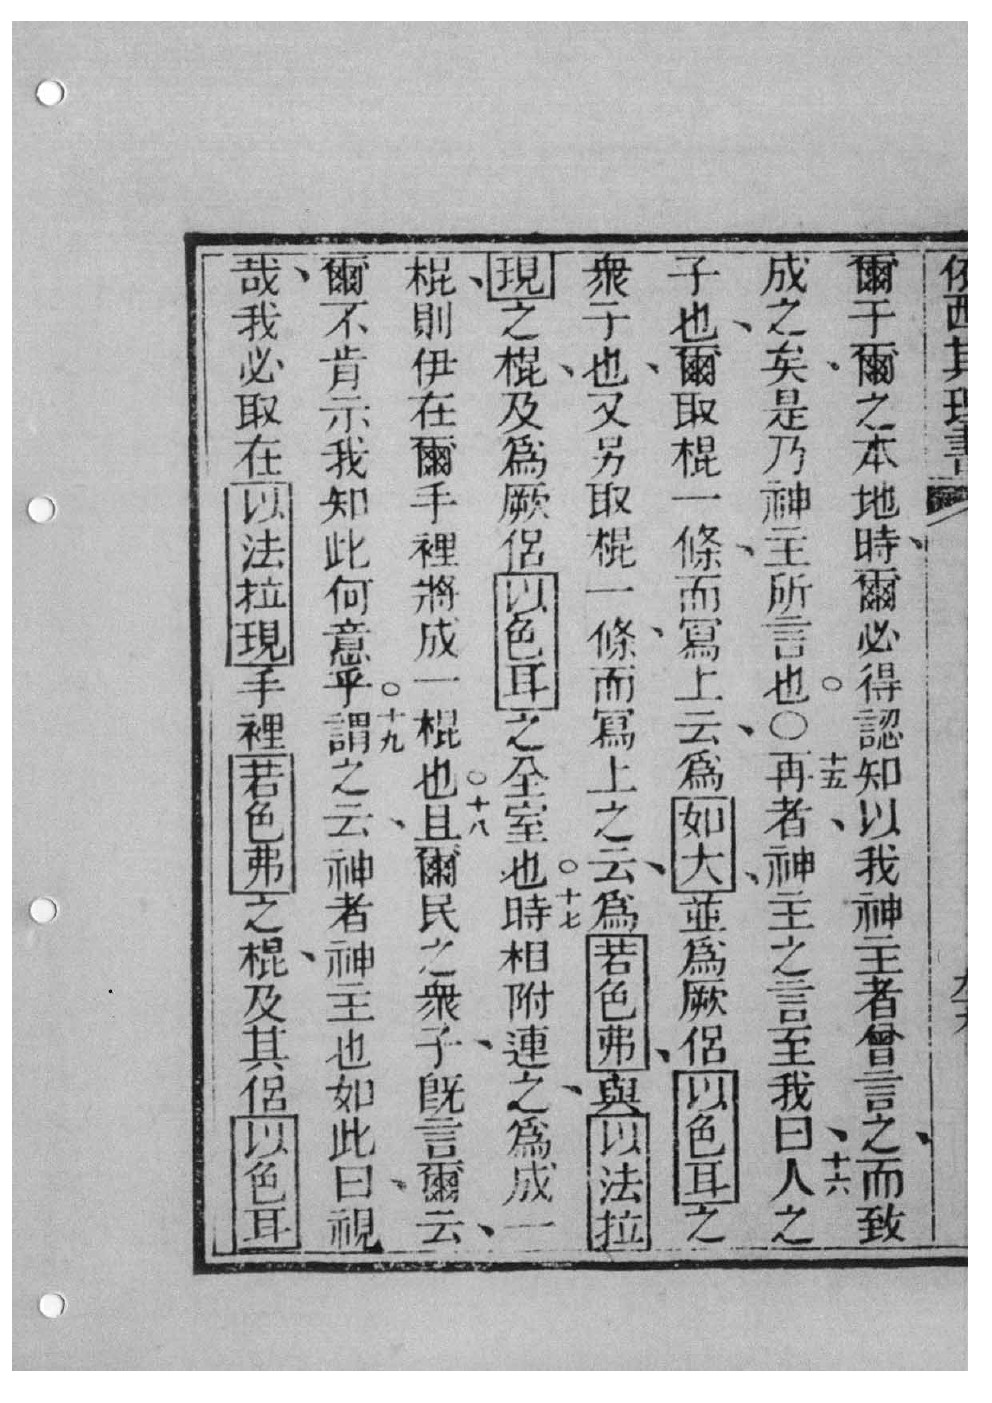 依西其理書
爾于爾之本地時、爾必得認知以我神主者曾言之、而致
成之矣、是乃神主所言也。○十五再者、神主之言至我曰、十六人之
子也、爾取棍一條、而寫上云、為如大、並為厥侶以色耳之
衆子也、又另取棍一條、而寫上之云、為若色弗、與以法拉
現之棍、及為厥侶以色耳之全室也。十七時相附連之、為成一
棍、則伊在爾手裡將成一棍也。十八且爾民之衆子、既言爾云、
爾不肯示我知此何意乎。十九謂之云、神者神主也如此曰、視
哉、我必取在以法拉現手裡若色弗之棍、及其侶以色耳